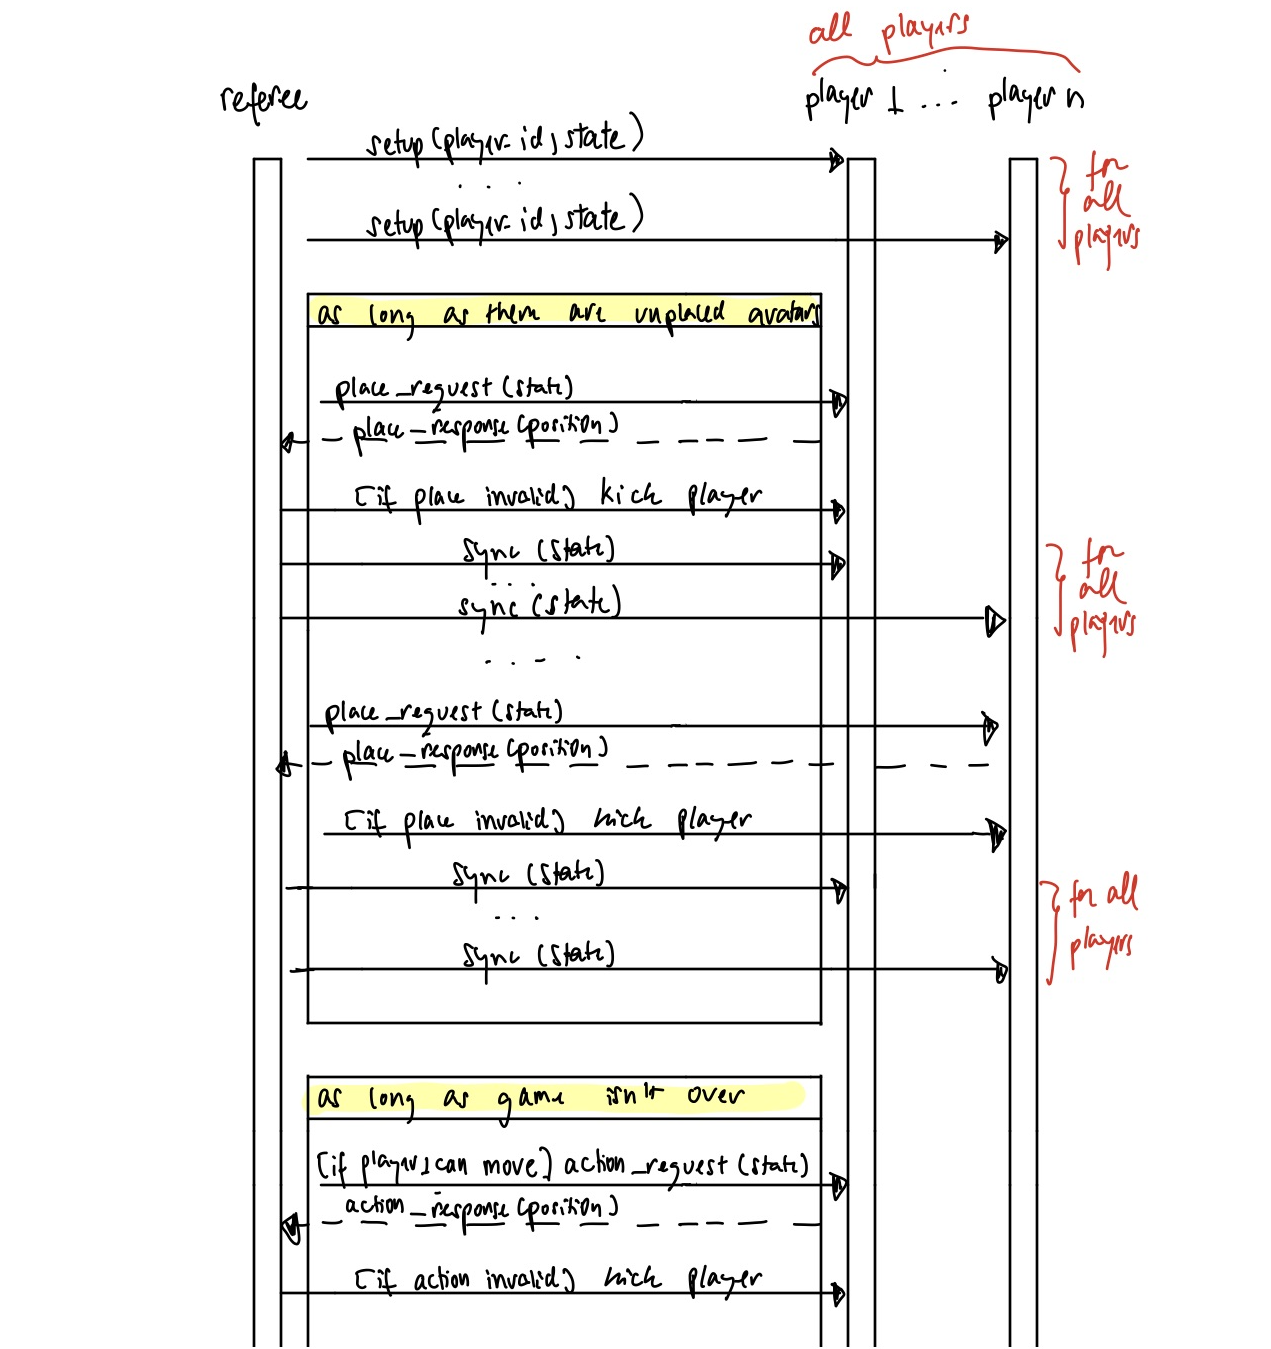 all players
referee
player 1 ... player n
setup(player-id, state)
. . .
setup(player-id, state)
for
all
players
as long as them are unplaced avatars
place_request (state)
place_response (position)
[if place invalid] kick player
sync (state)
. . .
sync (state)
for
all
players
. . - .
place_request (state)
place_response (position)
[if place invalid] kick player
sync (state)
. . .
sync (state)
for all
players
as long as game isn't over
[if player_1 can move] action_request (state)
action_response (position)
[if action invalid] kick player